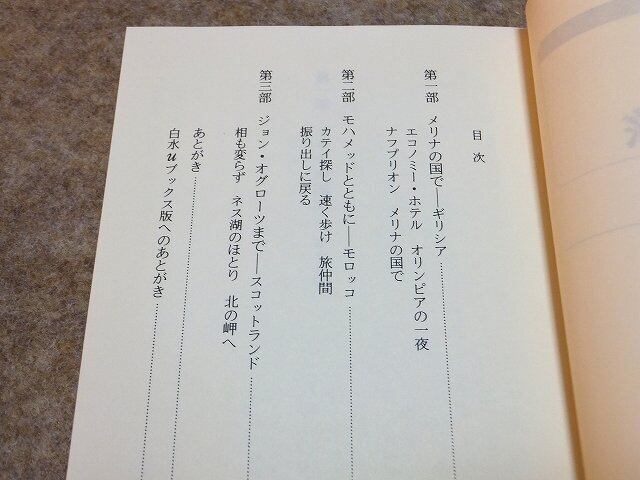 目次
第一部 メリナの国で──ギリシア
エコノミー・ホテル オリンピアの一夜
ナフプリオン メリナの国で
第二部 モハメッドとともに──モロッコ
カティ探し 速く歩け 旅仲間
振り出しに戻る
第三部 ジョン・オグローツまで──スコットランド
相も変らず ネス湖のほとり 北の岬へ
あとがき
白水uブックス版へのあとがき